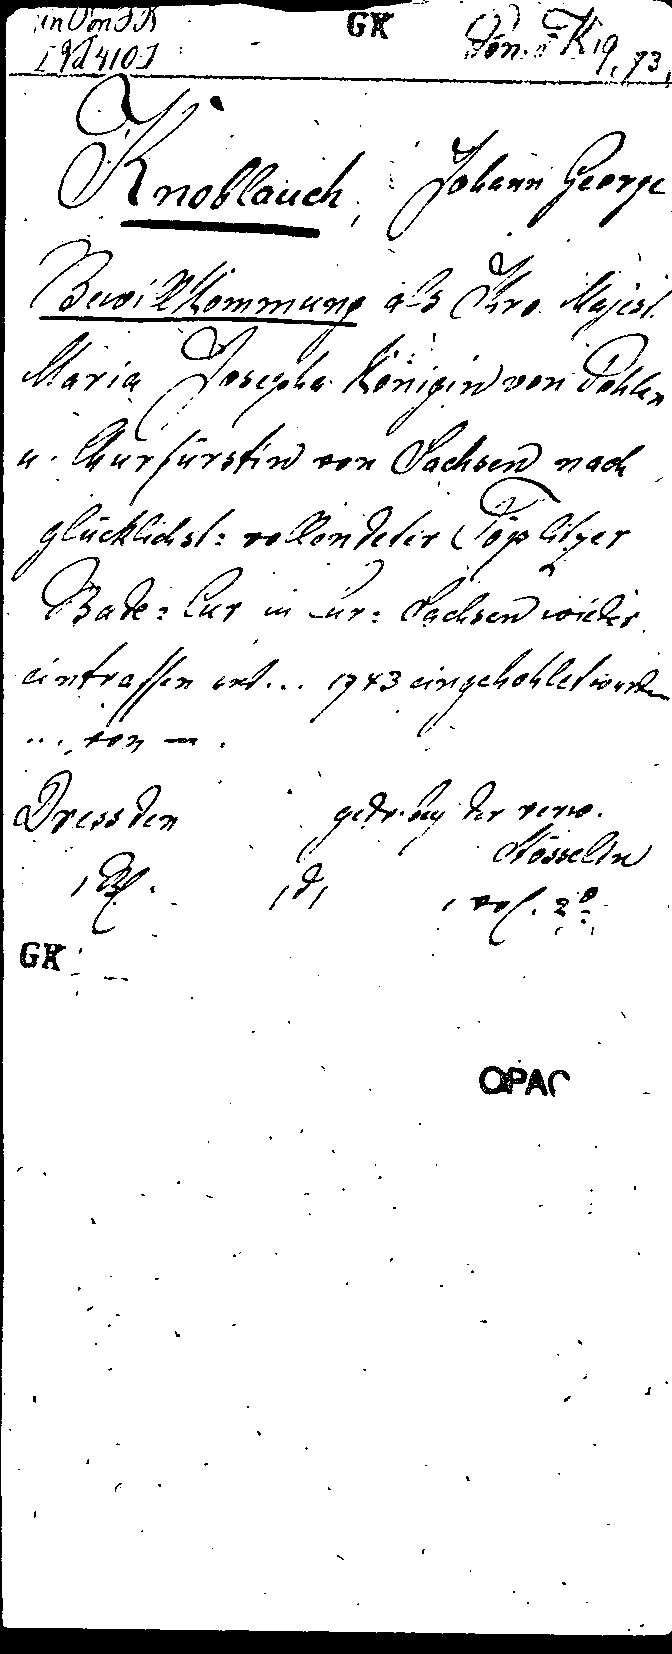 GK
19, 73,
Knoblauch, Johann George
Bewillkommung als Ihro Majest.
Maria Josepha Königin von Pohlen
u. Churfürstin von Sachsen nach
glücklichst= vollendeter Töplitzer
Bade=Cur in Chur=Sachsen wieder
eintraffen und... 1743 eingehohlet wurden
... von — .
Dressden gedr. bey der verw.
Stösseln
1 vol. 2º
GK
OPAC